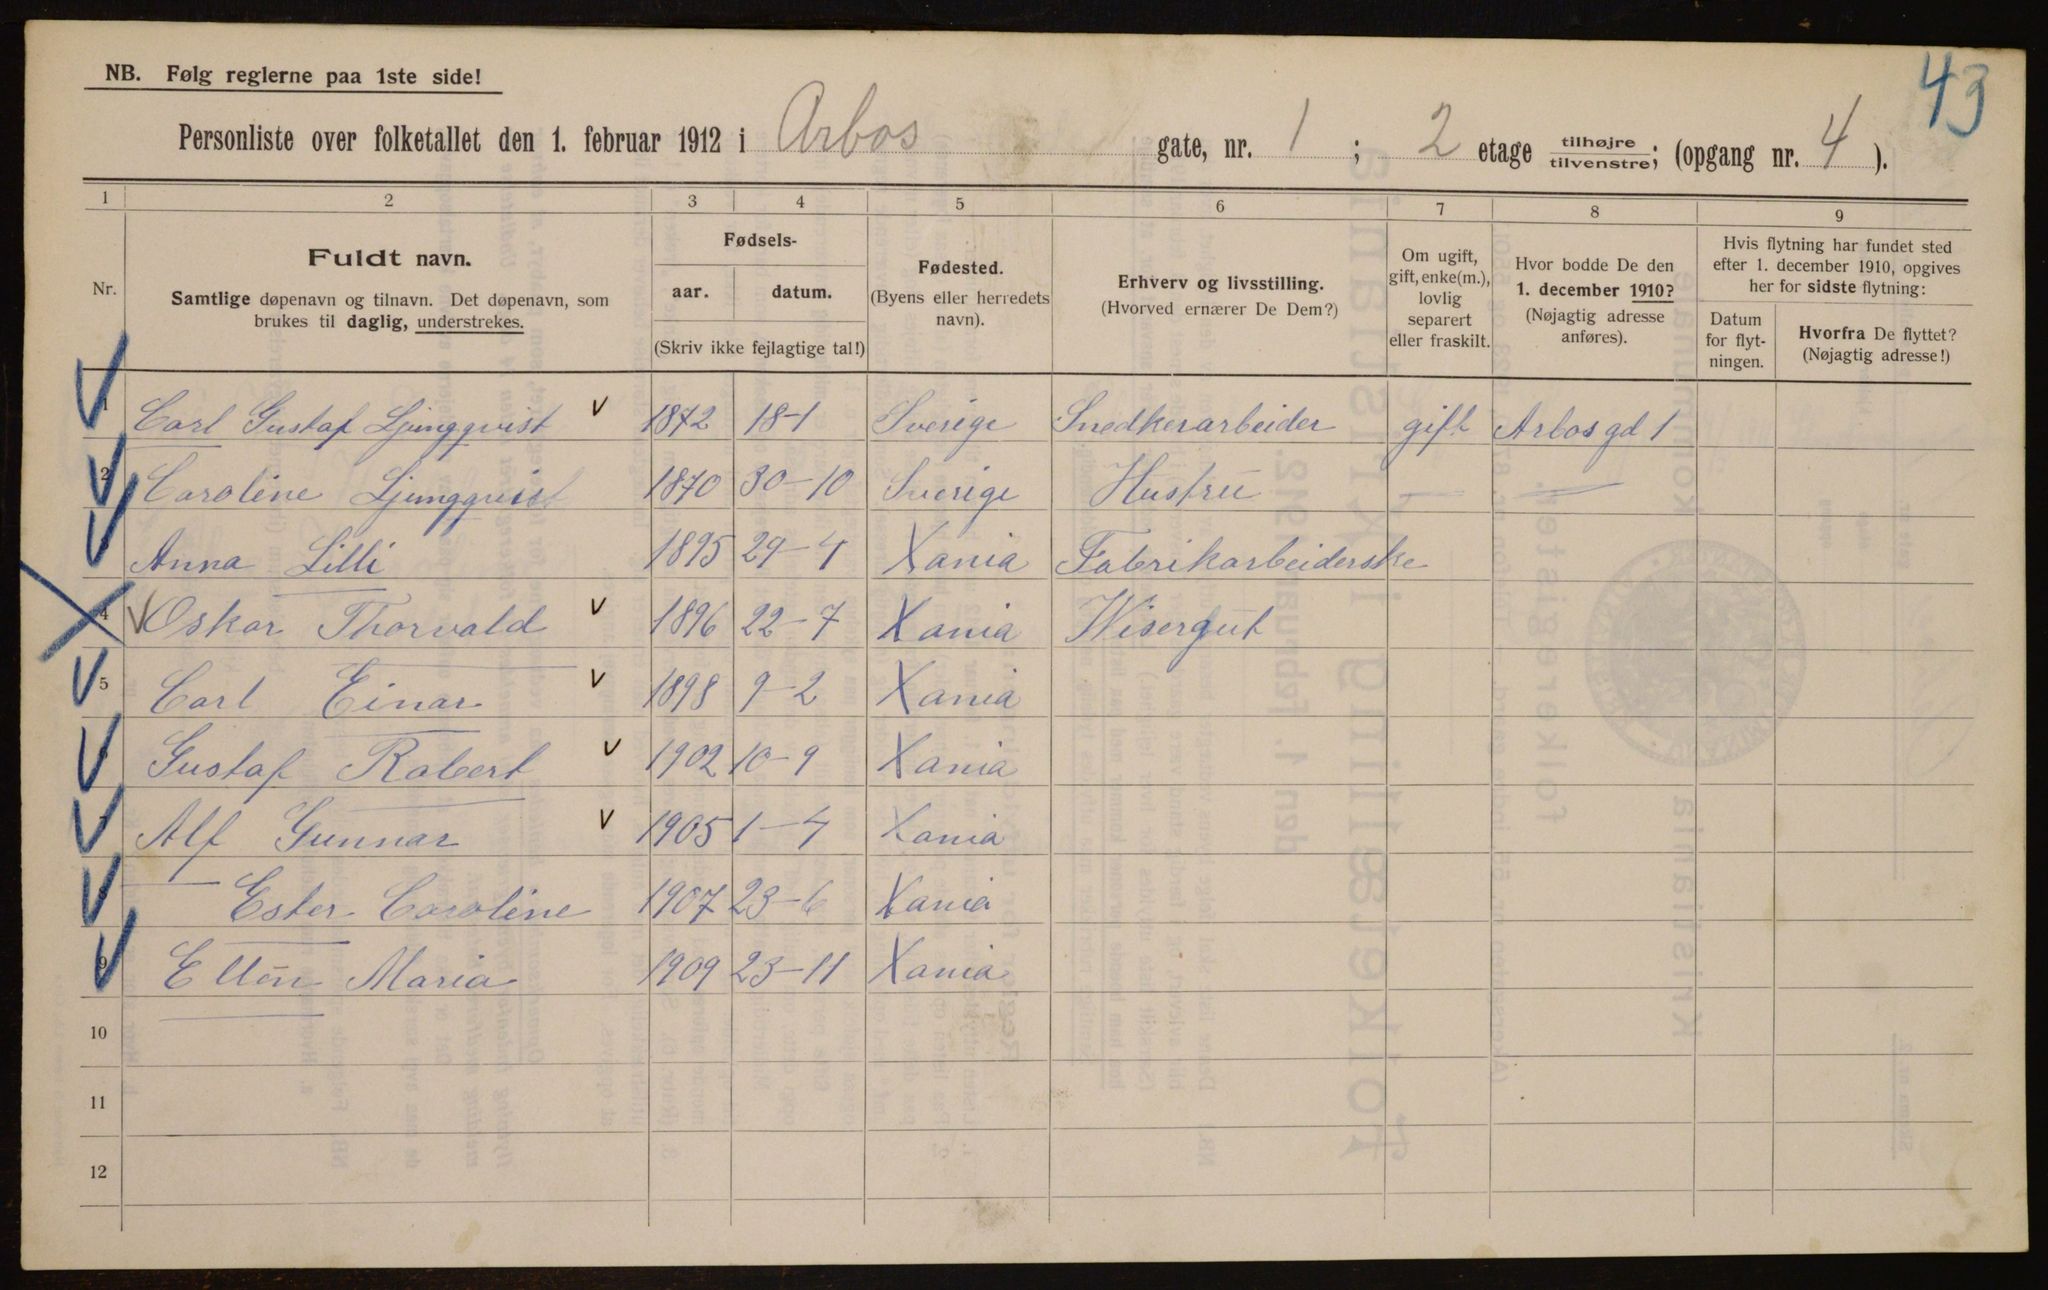 43
NB. Følg reglerne paa 1ste side!
Personliste over folketallet den 1. februar 1912 i Arbos gate, nr. 1 ; 2 etage tilhøjre/tilvenstre; (opgang nr. 4 ).
1 2 3 4 5 6 7 8 9
Nr.
Fuldt navn.
Samtlige døpenavn og tilnavn. Det døpenavn, som
brukes til daglig, understrekes.
Fødsels-
aar. datum.
(Skriv ikke fejlagtige tal!)
Fødested.
(Byens eller herredets
navn).
Erhverv og livsstilling.
(Hvorved ernærer De Dem?)
Om ugift,
gift, enke(m.),
lovlig
separert
eller fraskilt.
Hvor bodde De den
1. december 1910?
(Nøjagtig adresse
anføres).
Hvis flytning har fundet sted
efter 1. december 1910, opgives
her for sidste flytning:
Datum
for flyt-
ningen.
Hvorfra De flyttet?
(Nøjagtig adresse!)
1 Carl Gustaf Ljungqvist 1872 18-1 Sverige Snedkerarbeider gift Arbosgd 1
2 Caroline Ljungqvist 1870 30-10 Sverige Hustru — —
3 Anna Lilli 1895 29-4 Xania Fabrikarbeiderske
4 Oskar Thorvald 1896 22-7 Xania Visergut
5 Carl Einar 1898 9-2 Xania
6 Gustaf Robert 1902 10-9 Xania
7 Alf Gunnar 1905 1-4 Xania
8 Ester Caroline 1907 23-6 Xania
9 Ellen Maria 1909 23-11 Xania
10
11
12